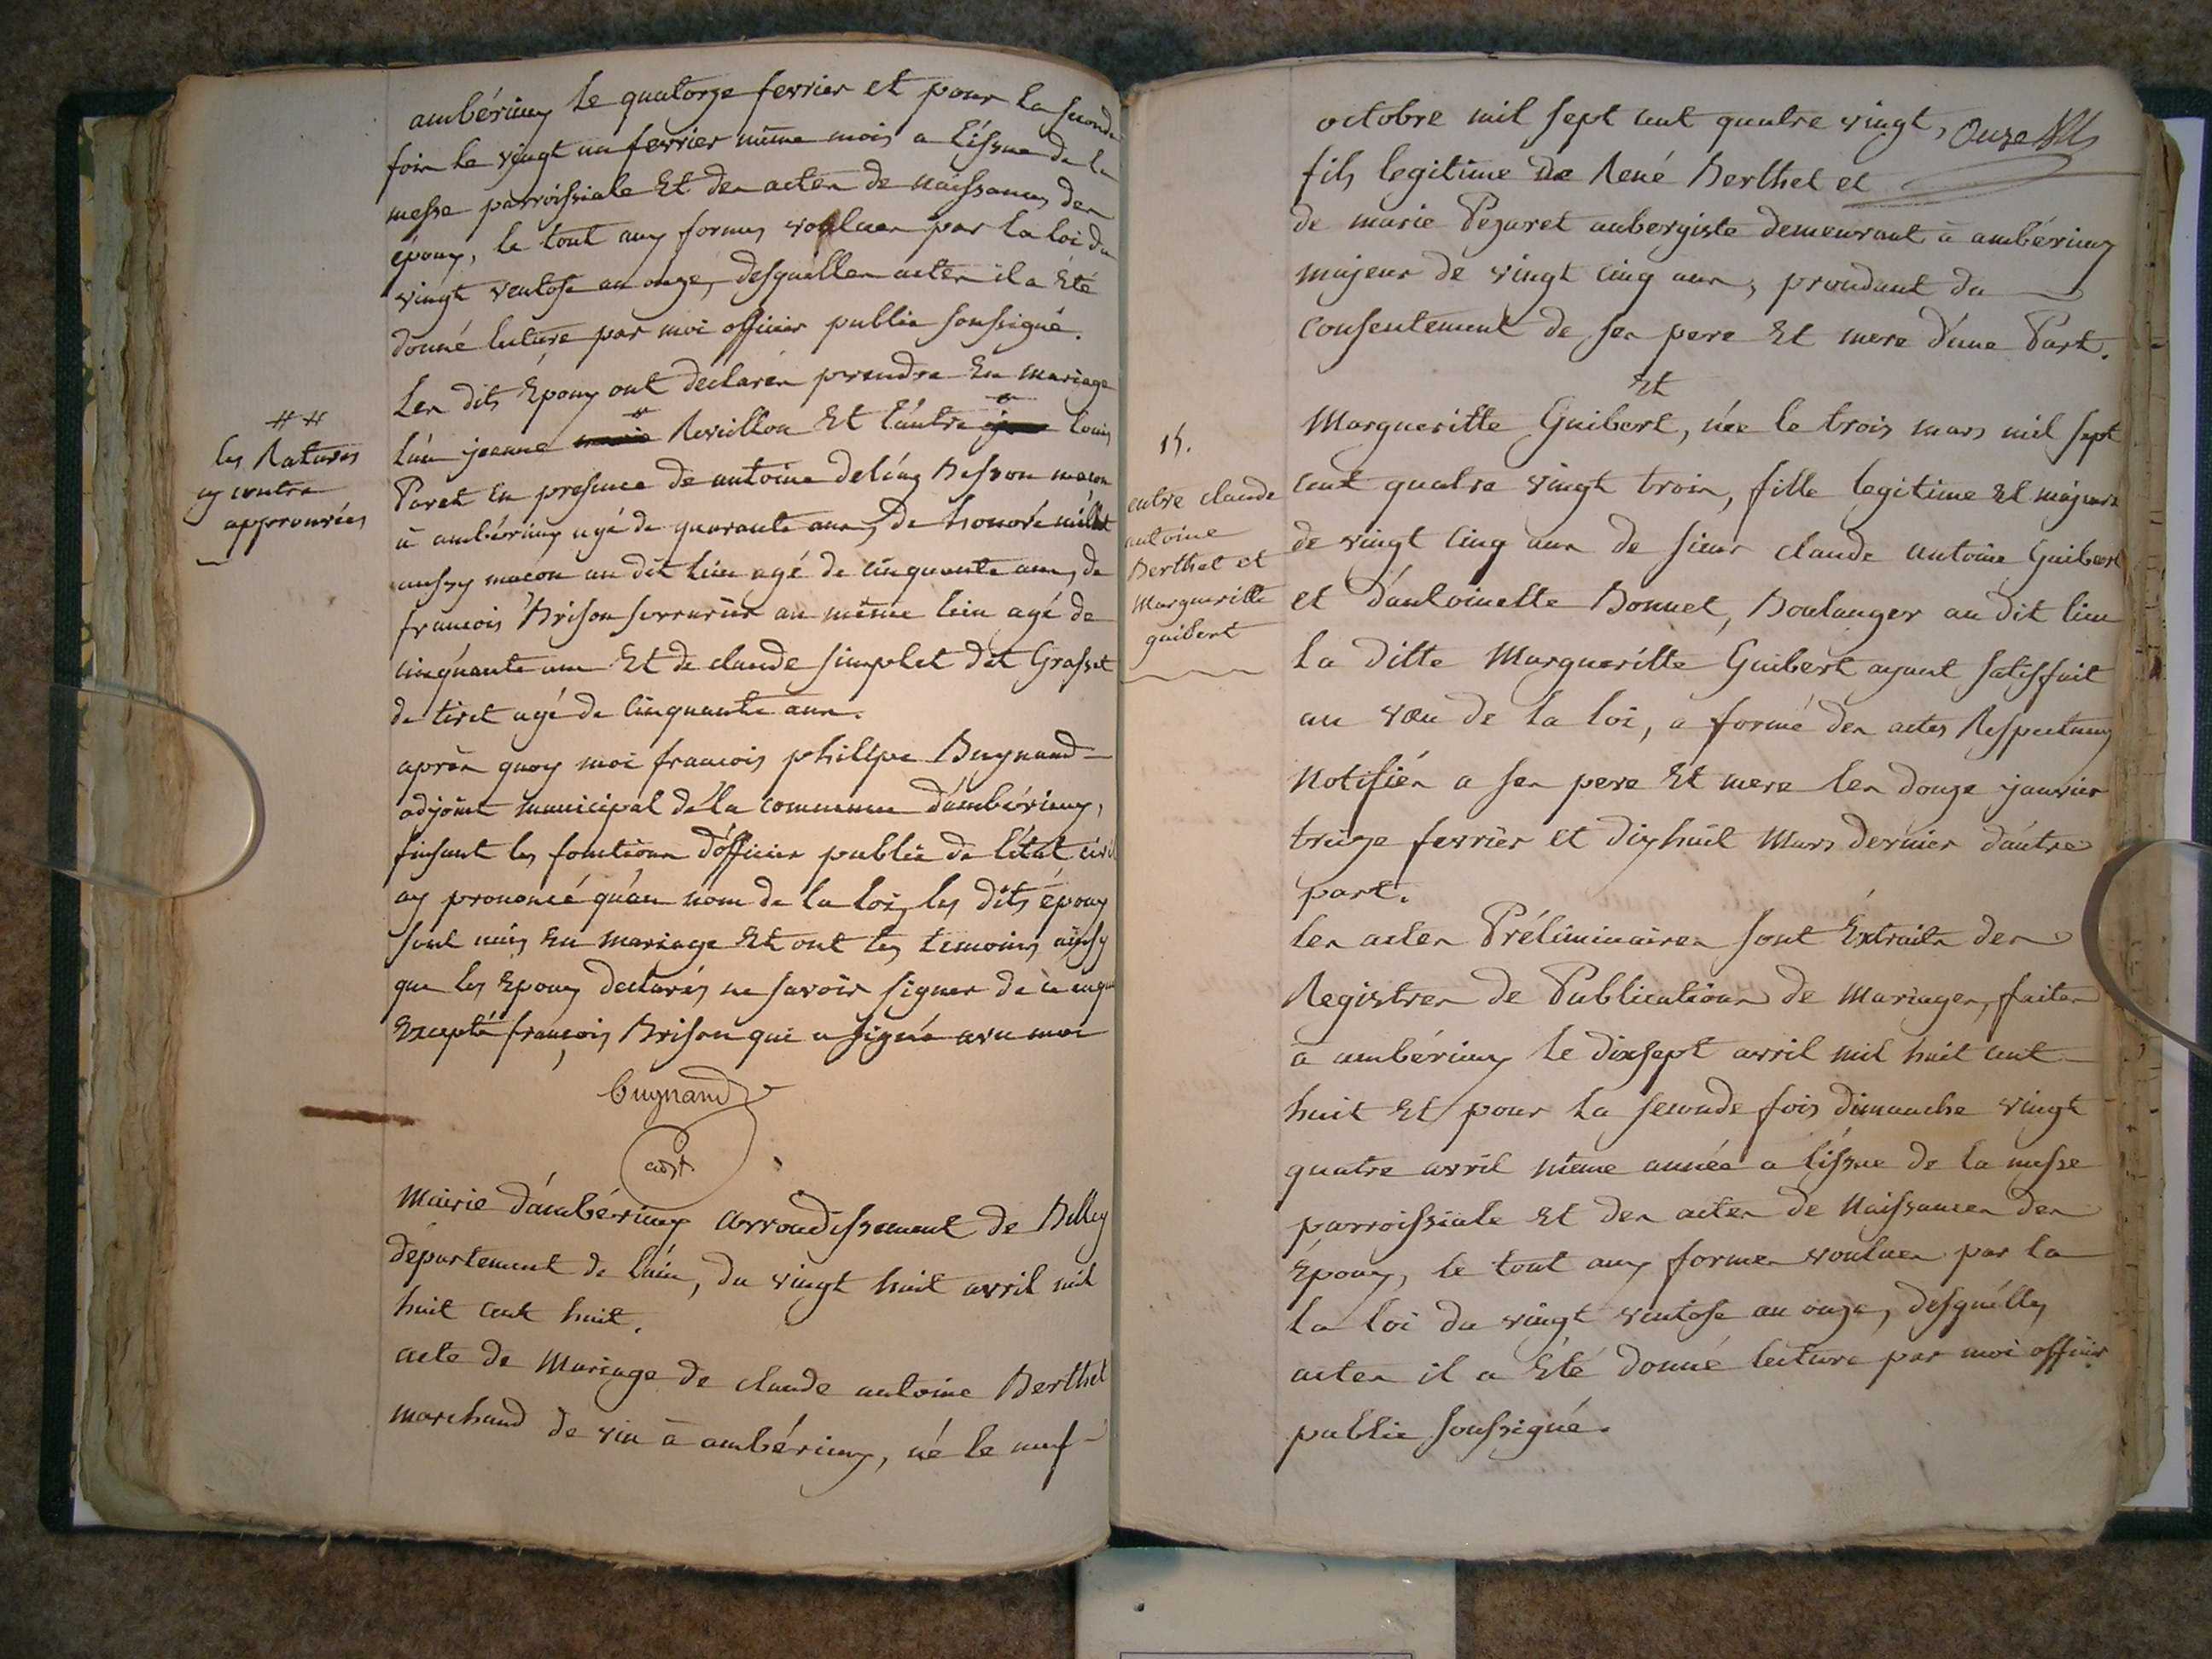 ambérieuy le quatorze fevrier et pour la seconde
fois le vingt un fevrier même mois a l'issue de la
messe parroissiale Et des actes de naissances des
épouy, le tout auy formes voulues par la loi du
vingt ventose an onze, desquélles actes il a Eté
donné lecture par moi officier public soussigné.
Les dits Epouy ont declarés prendre En mariage
l'un jeanne Revillon Et l'autre louis
Paret En presence de antoine Besson macon
à ambérieuy agé de quarante ans, de honoré millet
aussy macon au dit lieu agé de cinquante ans, de
francois Brison serrurier au même lieu agé de
cinquante ans Et de claude simplet dit Grasset
de tiret agé de cinquante ans.
après quoy moi francois philipe Bugnand
adjoint municipal de la commune d'ambérieuy,
faisant les fonctions d'officier public de l'état civil
ay prononcé qu'au nom de la loi, les dits épouy
sont unis En mariage Et ont les temoins ainsy
que les Epouy declarés ne savoir signer de ce enquis
Excepté françois Brison qui a signé avec moi
Bugnand
adjt
## 
les Ratures
cy contre
approuvées
Mairie d'ambérieuy arrondissement de Belley
departement de l'ain, du vingt huit avril mil
huit cent huit.
acte de Mariage de claude antoine Berthet
marchand de vin à ambérieuy, né le neuf
octobre mil sept cent quatre vingt, onze
fils legitime de René Berthet et
de marie Pezaret aubergiste demeurant à ambérieuy
majeur de vingt cinq ans, procedant du
consentement de ses pere Et mere d'une Part.
Et
15.
entre claude
antoine
Berthet et
Margueritte
guibert
Margueritte Guibert, née le trois mars mil sept
cent quatre vingt trois, fille legitime Et majeure
de vingt cinq ans de sieur claude antoine Guibert
et d'antoinette Bonnet, Boulanger au dit lieu
la ditte Margueritte Guibert ayant satisfait
au vœu de la loi, a formé des actes Respectueuy
Notifiés a ses pere Et mere les douze janvier
treize fevrier et dixhuit Mars dernier d'autre
part.
les actes Préliminaires sont Extraits des
Registres de Publications de Mariages, faites
à ambérieuy le dixsept avril mil huit cent
huit Et pour la seconde fois dimanche vingt
quatre avril même année a l'issue de la messe
parroissiale Et des actes de Naissances des
Épouy, le tout auy formes voulues par la
la loi du vingt ventose an onze, desquélles
actes il a Eté donné lecture par moi officier
public soussigné.